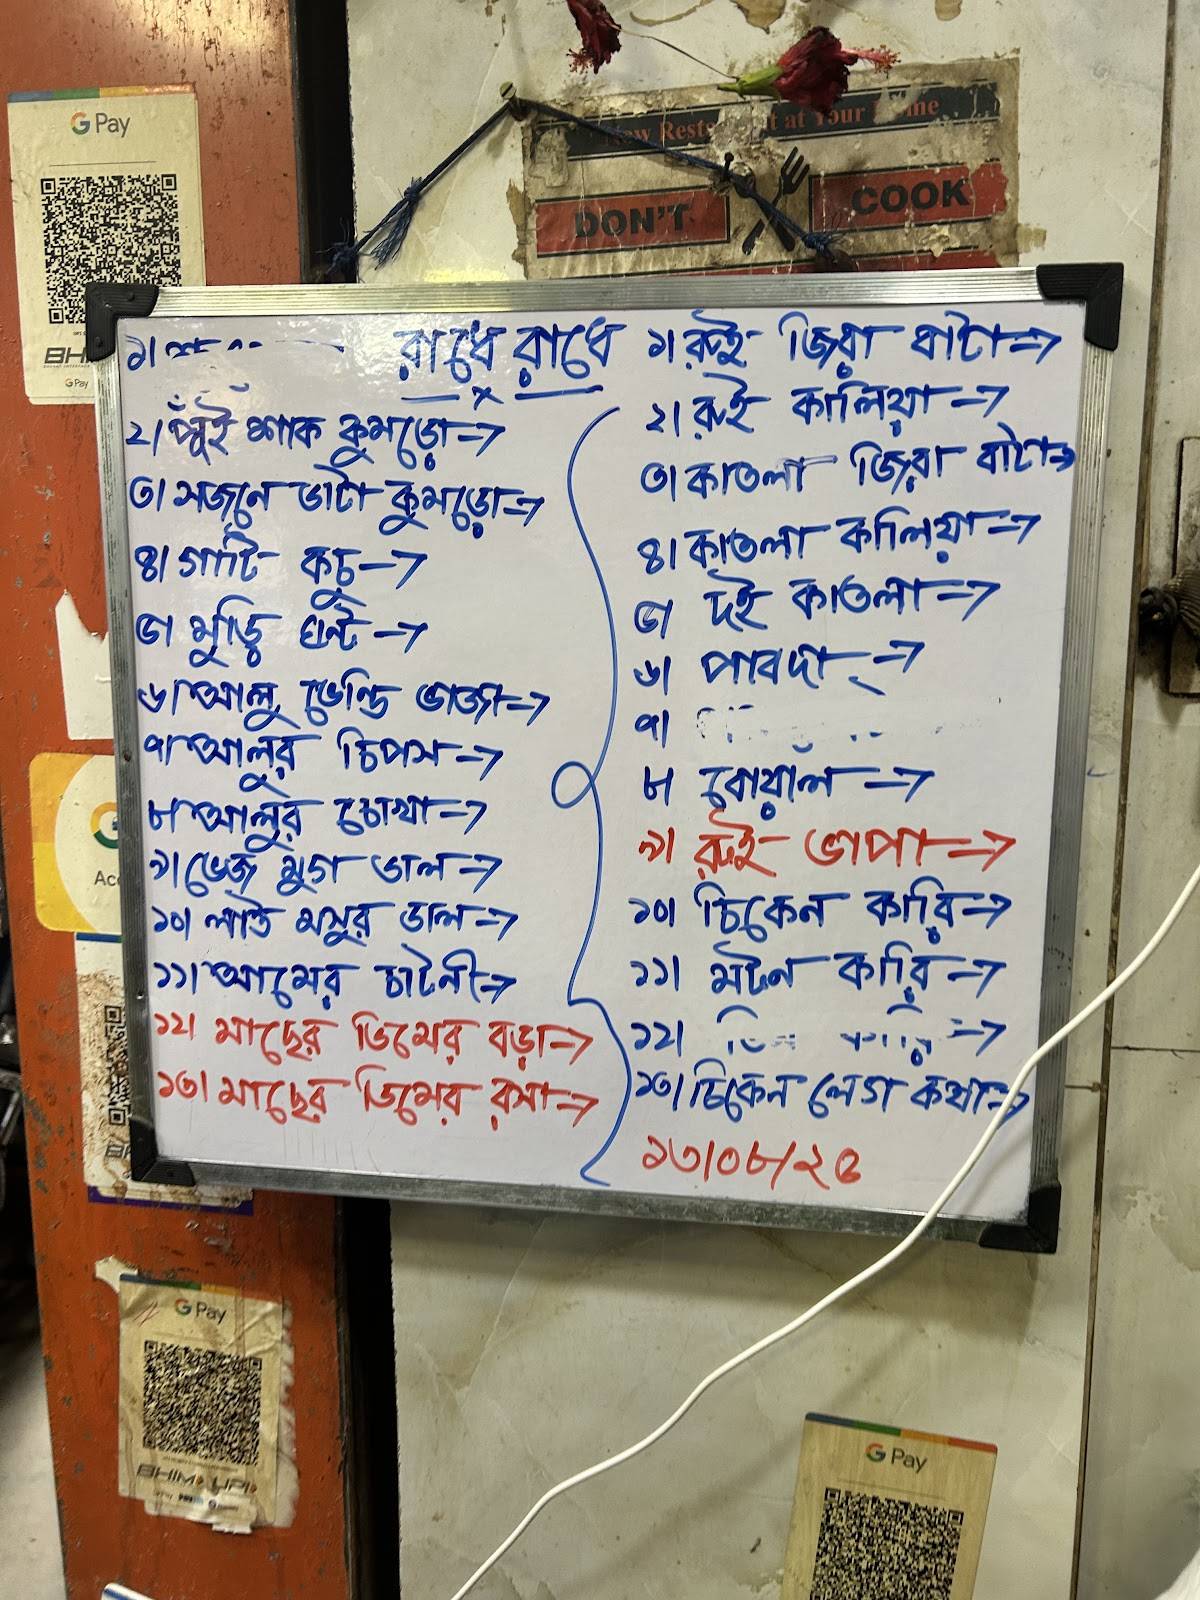 G Pay
New Restaurant at Your Home
DON'T COOK
BH
G Pay
রাধে রাধে
১।
২। পুঁই শাক কুমড়ো →
৩। সজনে ডাটা কুমড়ো →
৪। গাটি কচু →
৫। মুড়ি ঘন্ট →
৬। আলু ভেন্ডি ভাজা →
৭। আলুর চিপস →
৮। আলুর চোখা →
৯। ভেজ মুগ ডাল →
১০। লাউ মসুর ডাল →
১১। আমের চাটনী →
১২। মাছের ডিমের বড়া →
১৩। মাছের ডিমের রসা →
১। রুই জিরা বাটা →
২। রুই কালিয়া →
৩। কাতলা জিরা বাটা →
৪। কাতলা কালিয়া →
৫। দই কাতলা →
৬। পাবদা →
৭।
৮। বোয়াল →
৯। রুই ভাপা →
১০। চিকেন কারি →
১১। মটন কারি →
১২। →
১৩। চিকেন লেগ কষা →
১৩/০৮/২৫
G Pay
BHIM UPI
G Pay